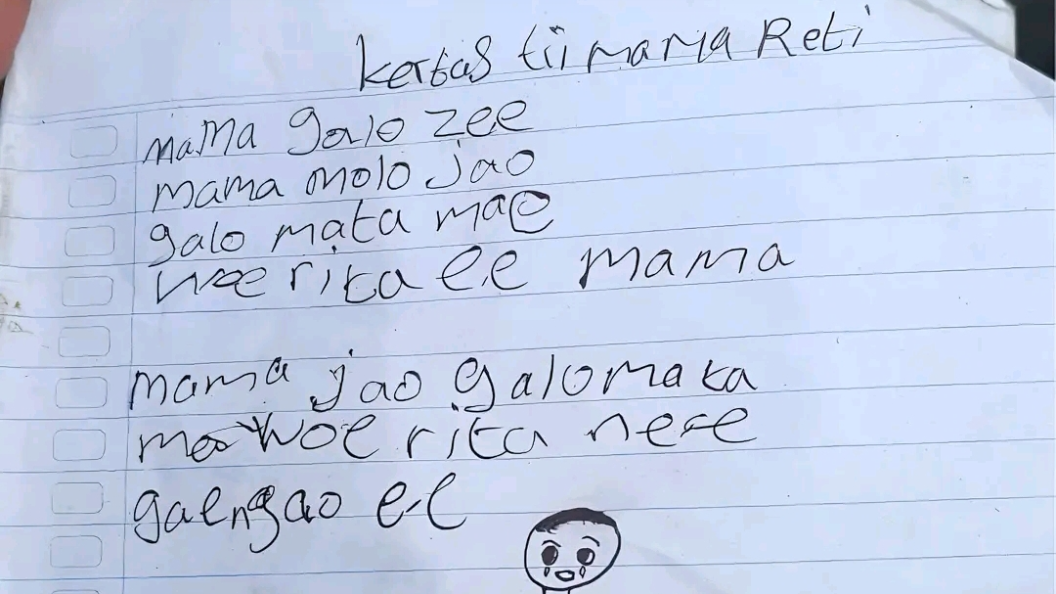 Kertas tii mama Reti
mama galo zee
mama molo jao
galo mata mae
woe rita ee mama
mama jao galo mata
mae woe rita ne e e
gae ngao e-e